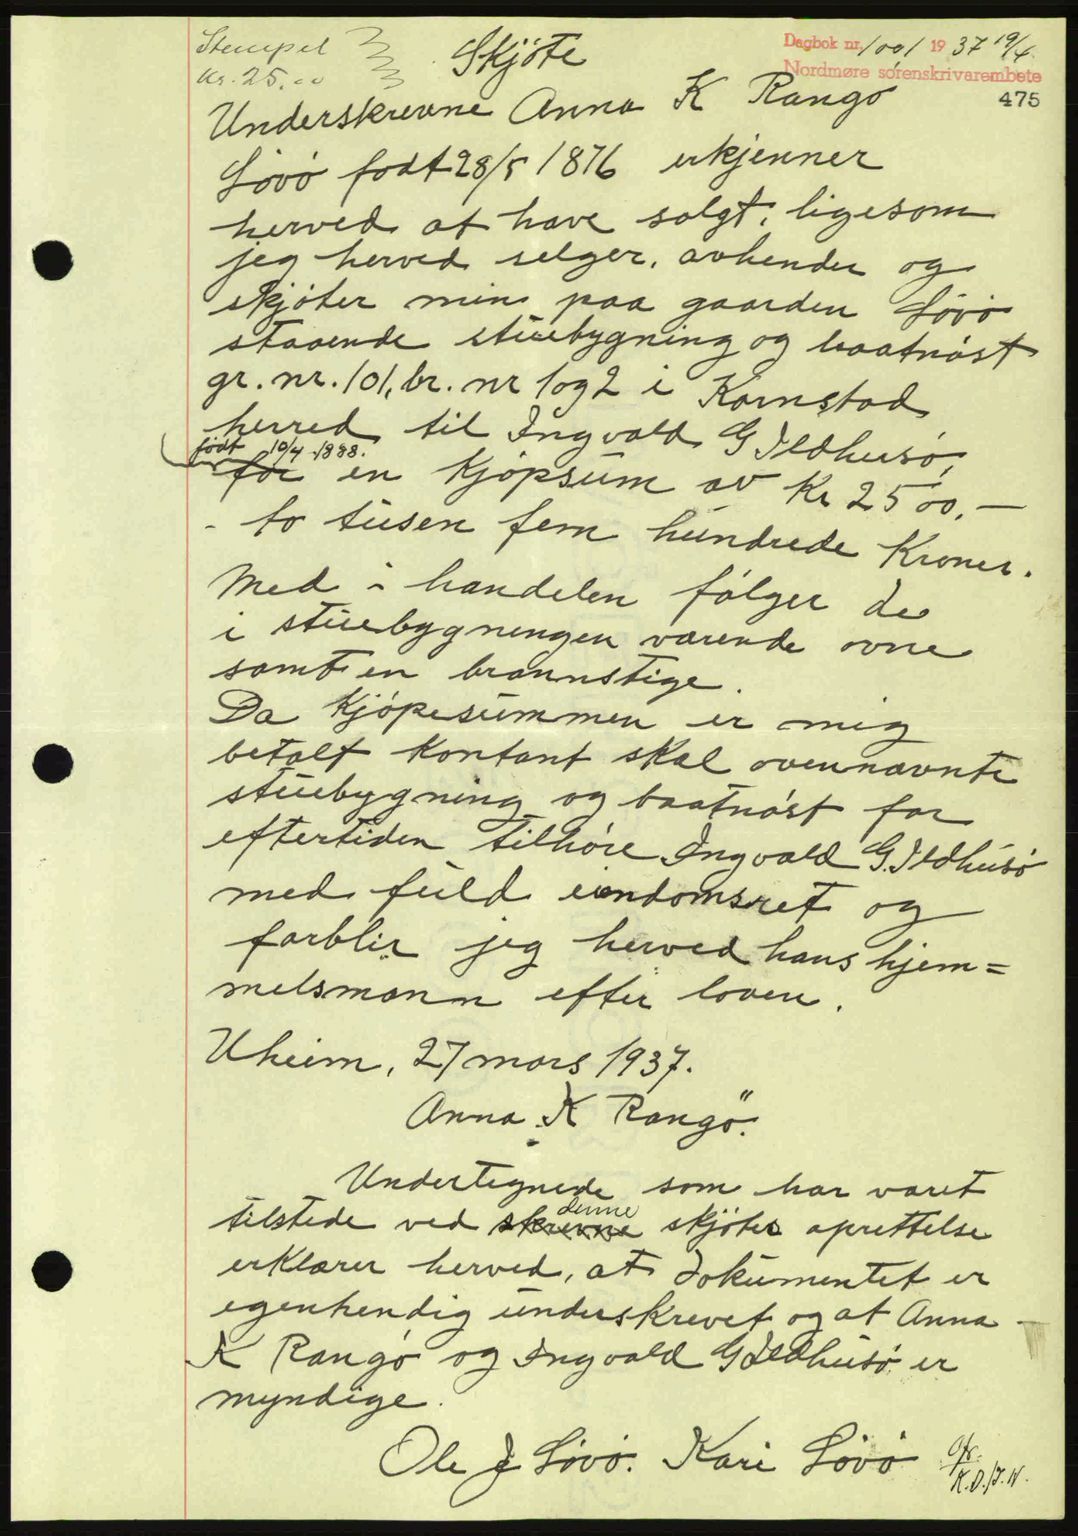 Stempel
Kr. 25.00
Dagbok nr. 1001 1937 19/4
Nordmøre sørenskrivarembete
475
Skjøte
Underskrevne Anna K Rangø
Løvø født 28/5 1876 erkjenner
herved at have solgt, ligesom
jeg herved selger, avhender og
skjøter min paa gaarden Løvø
staaende stuebygning og baatnøst
gr. nr. 101, br. nr 1 og 2 i Kornstad
herred til Ingvald G Ildhusø,
født 10/4 1888.
for en kjøpsum av Kr 2500.—
- to tusen fem hundrede Kroner.
Med i handelen følger de
i stuebygningen værende ovne
samt en brannstige.
Da kjøpesummen er mig
betalt kontant skal ovennævnte
stuebygning og baatnøst for
eftertiden tilhøre Ingvald G. Ildhusø
med fuld eiendomsret og
forblir jeg herved hans hjem=
melsmann efter loven.
Uheim, 27 mars 1937.
Anna K Rangø.
Undertegnede som har været
denne
tilstede ved skrevne skjøtes oprettelse
erklærer herved, at dokumentet er
egenhendig underskrevet og at Anna
K Rangø og Ingvald G Ildhusø er
myndige.
Ole J Løvø. Kari Løvø
K.D./J.N.